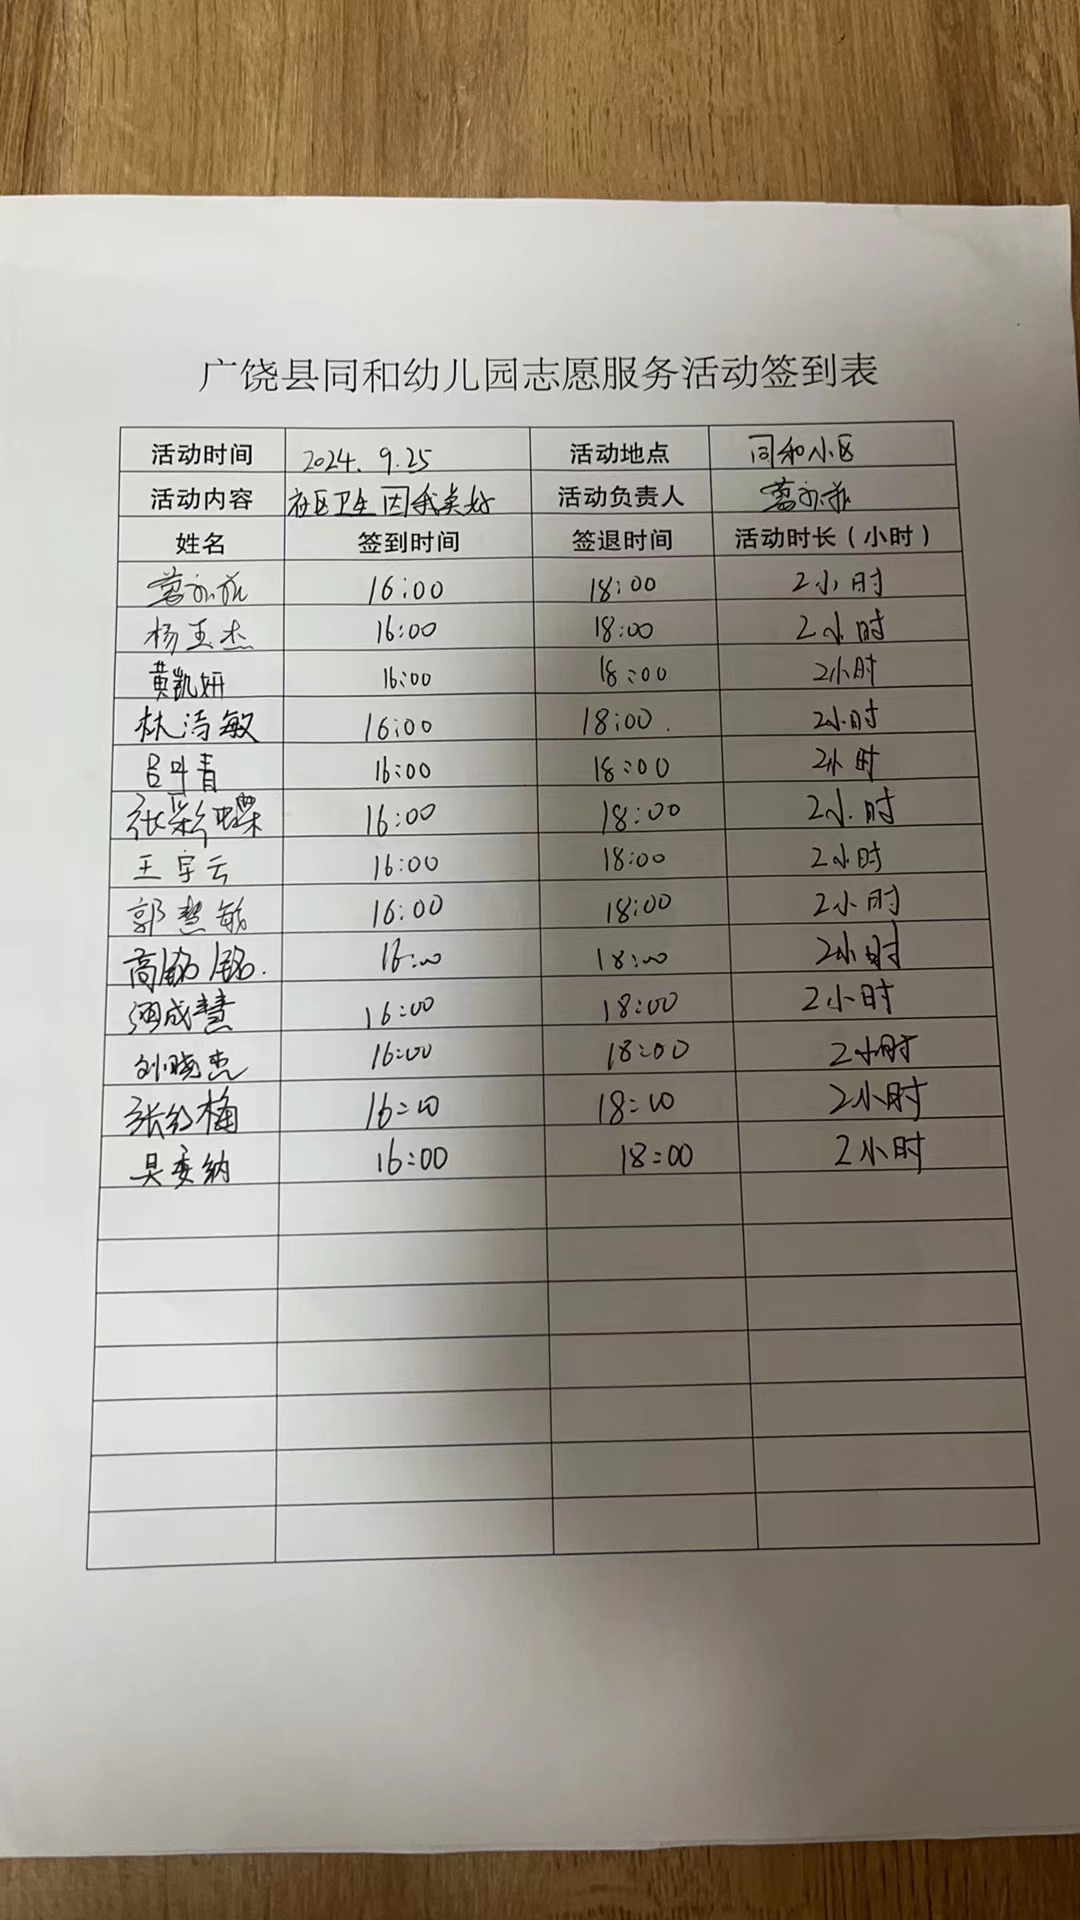 广饶县同和幼儿园志愿服务活动签到表
活动时间 2024.9.25 活动地点 同和小区
活动内容 社区卫生因我美好 活动负责人
姓名 签到时间 签退时间 活动时长（小时）
16:00 18:00 2小时
杨玉杰 16:00 18:00 2小时
黄凯妍 16:00 18:00 2小时
林洁敏 16:00 18:00. 2小时
吕叶青 16:00 18:00 2小时
张彩蝶 16:00 18:00 2小时
王宇云 16:00 18:00 2小时
郭慧敏 16:00 18:00 2小时
高 16:00 18:00 2小时
成慧 16:00 18:00 2小时
刘晓杰 16:00 18:00 2小时
张红梅 16:00 18:00 2小时
吴委纳 16:00 18:00 2小时